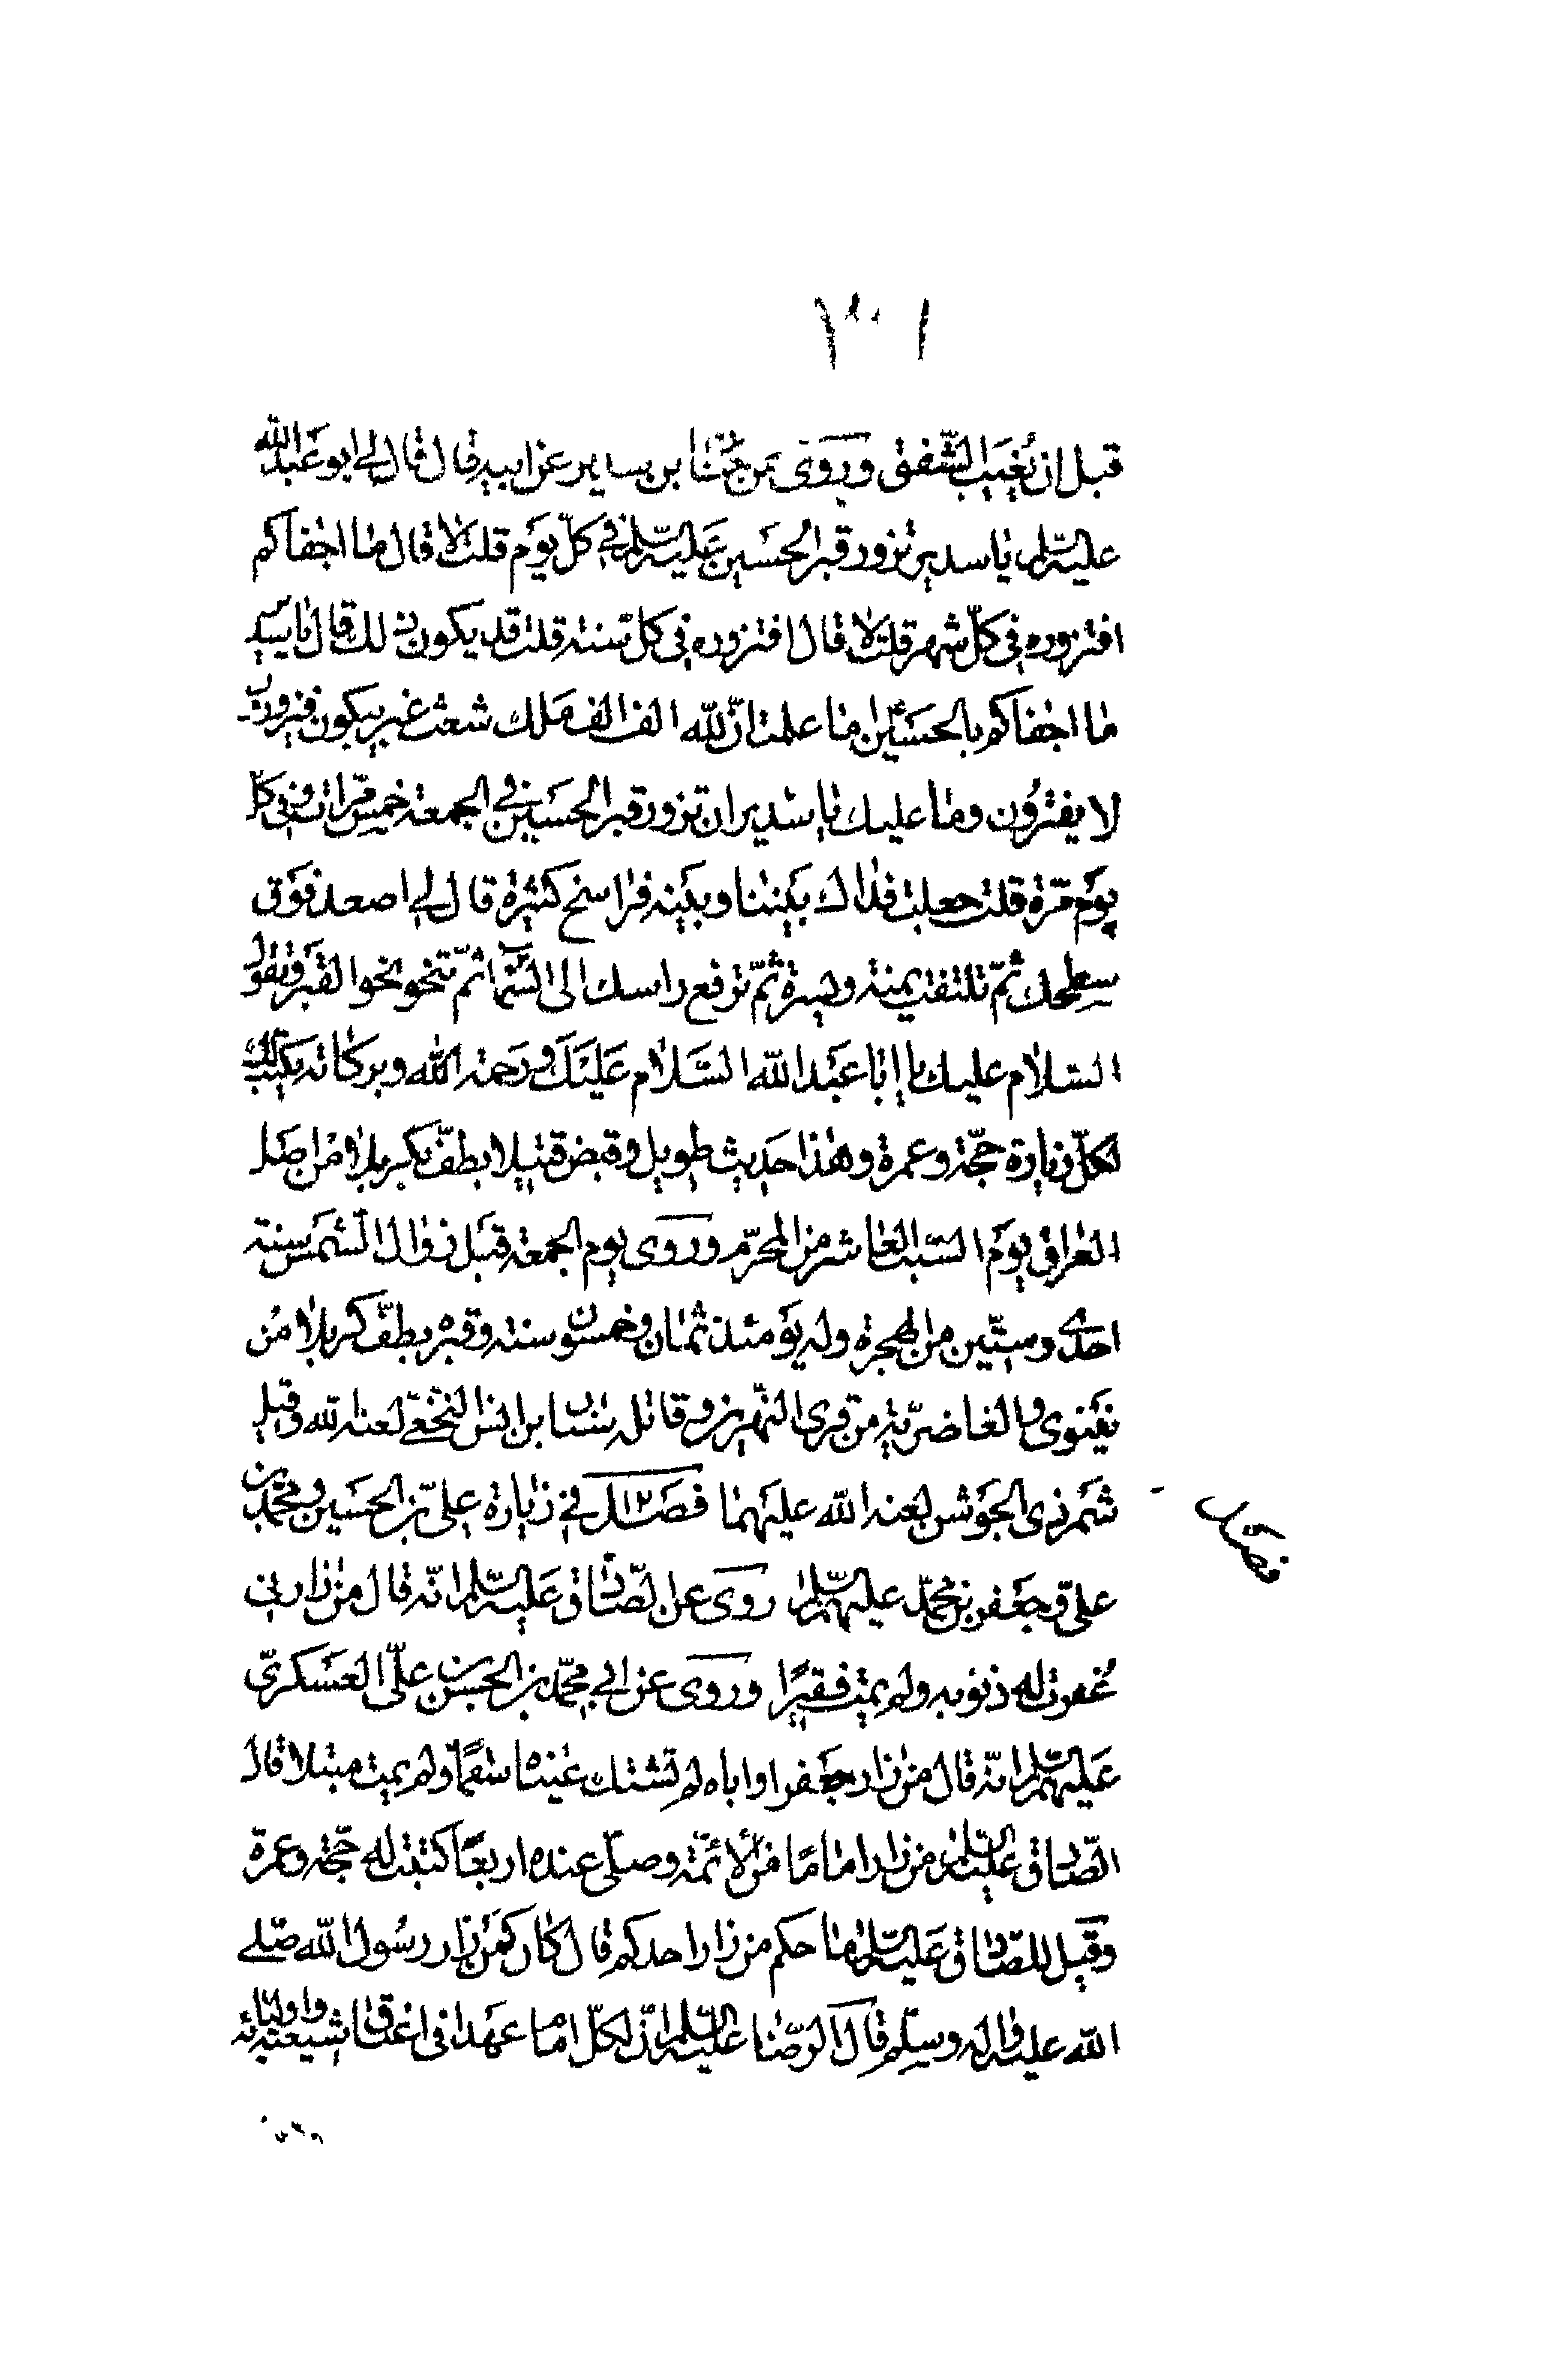 قبل ان يغيب الشفق وروى عن حنان بن سدير عن ابيه قال قال لي ابو عبد الله
عليه السلم يا سدير تزور قبر الحسين عليه السلم في كل يوم قلت لا قال ما اجفاكم
افتزوره في كل شهر قلت لا قال افتزوره في كل سنة قلت قد يكون ذلك قال يا سدير
ما اجفاكم بالحسين اما علمت ان لله الف الف ملك شعث غبر يبكون فيزورون
لا يفترون وما عليك يا سدير ان تزور قبر الحسين في الجمعة خمس مرات وفي كل
يوم مرة قلت جعلت فداك بيننا وبينه فراسخ كثيرة قال لي اصعد فوق
سطحك ثم تلتفت يمنة ويسرة ثم ترفع راسك الى السماء ثم تنحو نحو القبر وتقول
السلام عليك يا ابا عبد الله السلام عليك ورحمة الله وبركاته يكتب لك
لكل زيارة حجة وعمرة وهذا حديث طويل وقبض قتيلا بطف بكربلا من اصل
العراق يوم السبت العاشر من المحرم وروى يوم الجمعة قبل زوال الشمس سنة
احدى وستين من الهجرة وله يومئذ ثمان وخمسون سنة وقبره بطف كربلا من
نينوى والغاضرية من قرى النهرين وقاتله سنان ابن انس النخعي لعنه الله وقيل
شمر ذي الجوشن لعنه الله عليهما فصل ١٢ في زيارة علي بن الحسين ومحمد بن
علي وجعفر بن محمد عليهم السلم روى عن الصادق عليه السلم انه قال من زارني
غفرت له ذنوبه ولم يمت فقيرا وروى عن ابي محمد بن الحسن بن علي العسكري
عليهم السلم انه قال من زار جعفرا واباه لم تشتك عيناه سقما ولم يمت مبتلا قال
الصادق عليه السلم من زار اماما من الائمة وصلى عنده اربعا كتبت له حجة وعمرة
وقيل للصادق عليه السلم ما حكم من زار احدكم قال كان كمن زار رسول الله صلى
الله عليه واله وسلم قال الرضا عليه السلم ان لكل امام عهدا في اعناق شيعته واوليائه
فصل